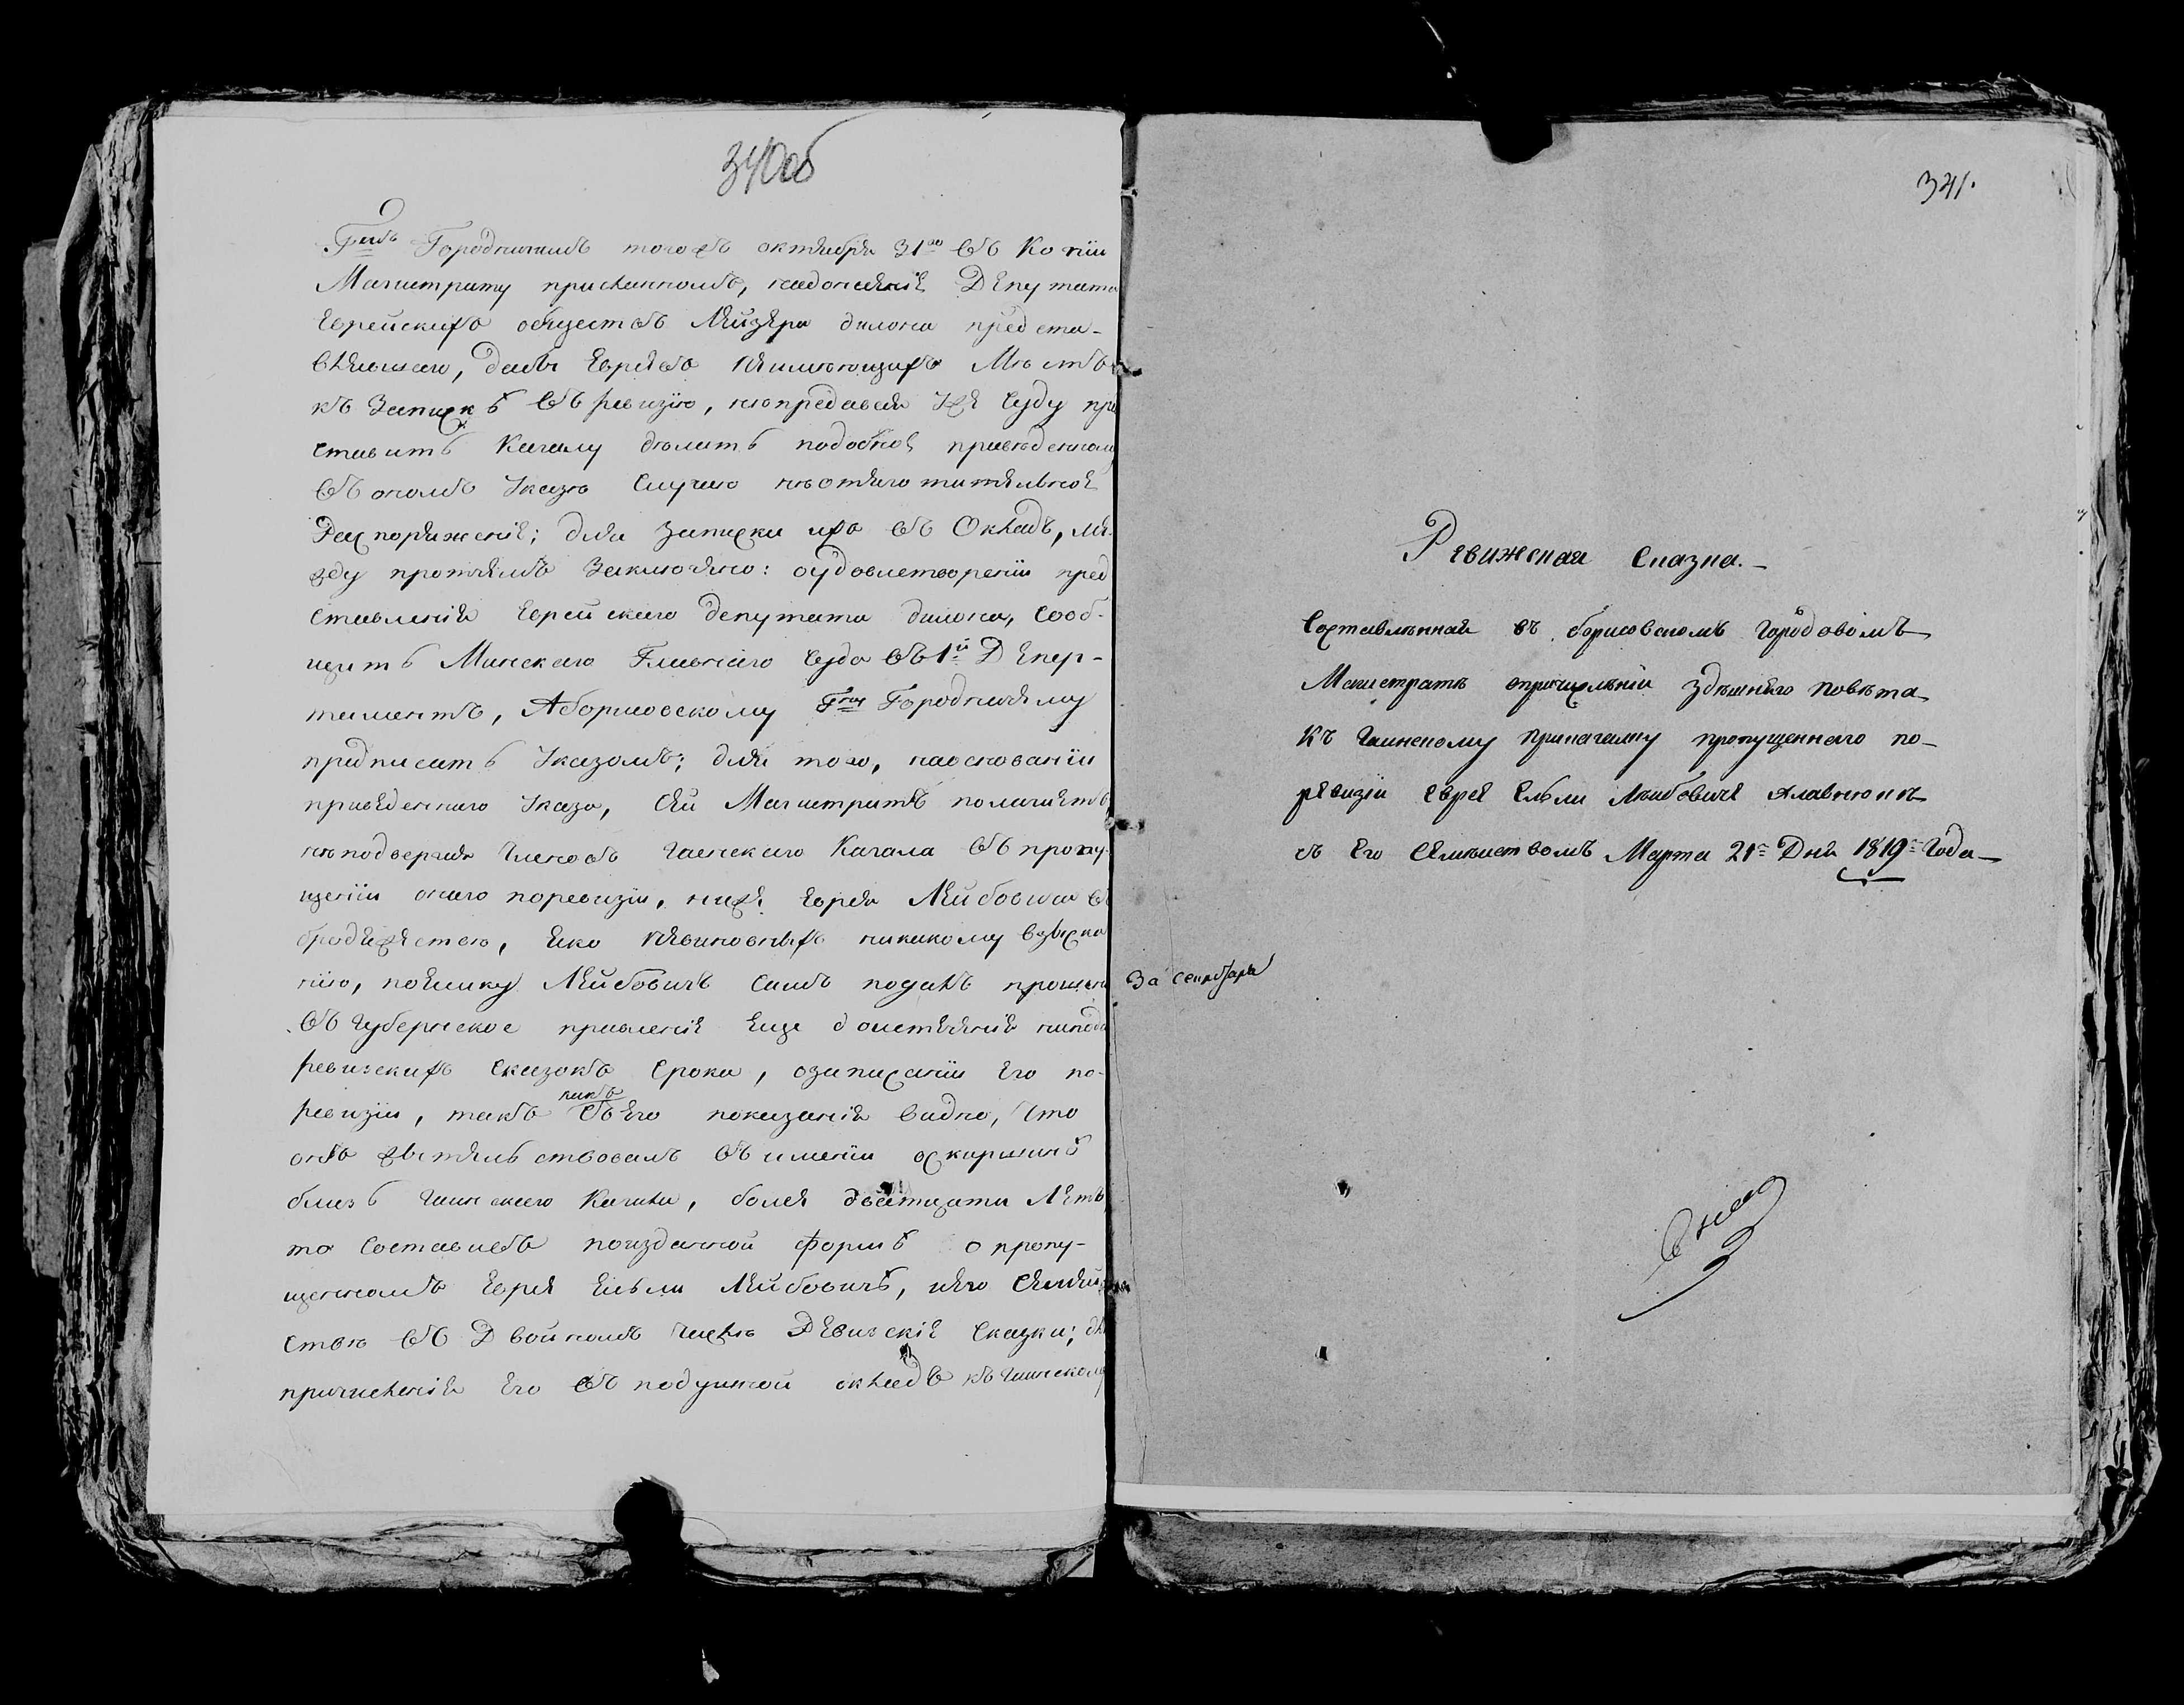 340об
Г-нъ Городничимъ тогожъ октября 31го въ Копіи
Магистрату присланномъ, Депутата
Еврейскихъ обществъ Лейзера дилона предста-
влявшаго, дабы Евреевъ неимеющихъ Местъ
къ Записке въ ревизію, непредавая Суду пре
ставить Кагалу делать подобное приведенному
въ ономъ Указе Случаю неотяготительное
Распоряженіе; для записки ихъ въ Окладъ, ме-
жду протчемъ Заключено: оудовлетвореніи пред
ставленія Еврейскаго депутата дилона, Сооб-
щить Минскаго Главнаго Суда въ 1й Депер-
таментъ, Аборисовскому Г-ну Городничему
предписать Указомъ; для того, наоснованіи
приведеннаго Указа, Сей Магистратъ полагаетъ
неподвергая Членовъ Гаенскаго Кагала въ пропу-
щеніи онаго поревизіи, ниже Еврея Лейбовича въ
бродяжестве, яко невиновныхъ никакому взыска
нію, поелику Лейбовичъ Самъ подалъ прошен
въ Губернское правленіе Еще
ревизскихъ Сказокъ Срока, озаписаніи Его по-
ревизіи, такъ какъ съ Его показанія видно, что
онъ жительствовалъ въ именіи
близъ Гаинскаго Кагала, более дватцати Летъ
то Составивъ поизданной форме о пропу-
щенномъ Еврея Ельи Лейбовиче, иего Семей-
стве въ Двойномъ числе Ревизскіе Сказки; дл
причисленія Его въ подушной окладъ къ Гаинском
341.
Ревижская Сказка.-
Составленная въ борисовскомъ Городовомъ
Магистрате опричисленіи Здешнего повета
къ Гаинскому прикагалку пропущеннаго по-
ревизіи еврея Ельли Леибовича
съ Его Семеиствомъ Марта 21го Дня 1819го Года
За Сентябрь